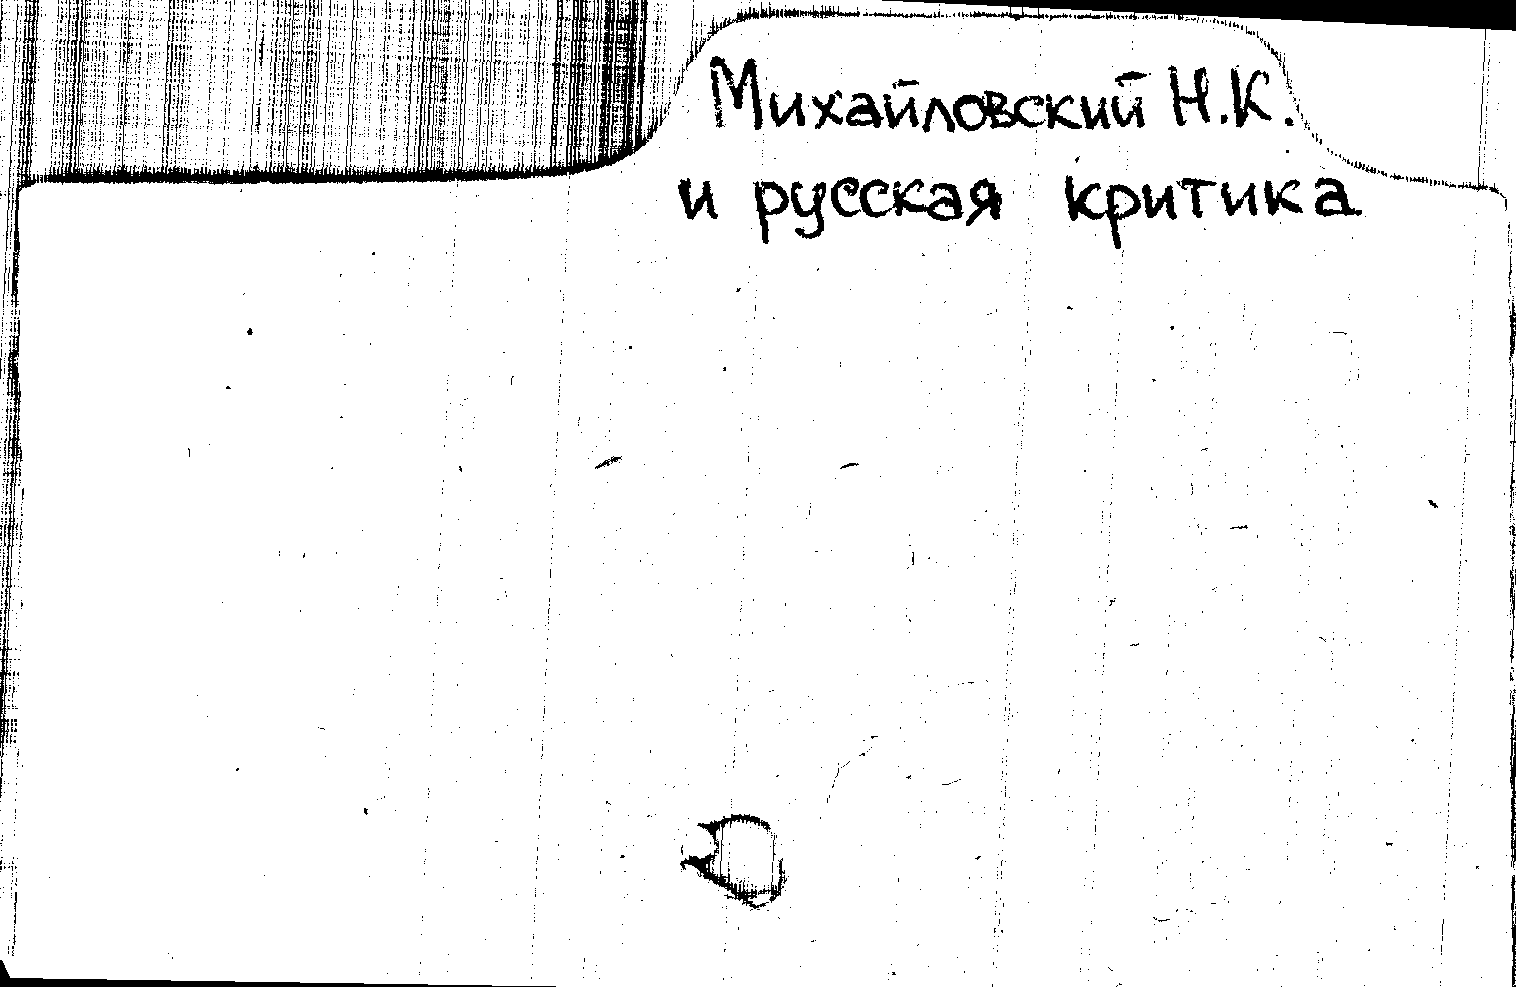 Михайловский Н.К.
и русская критика